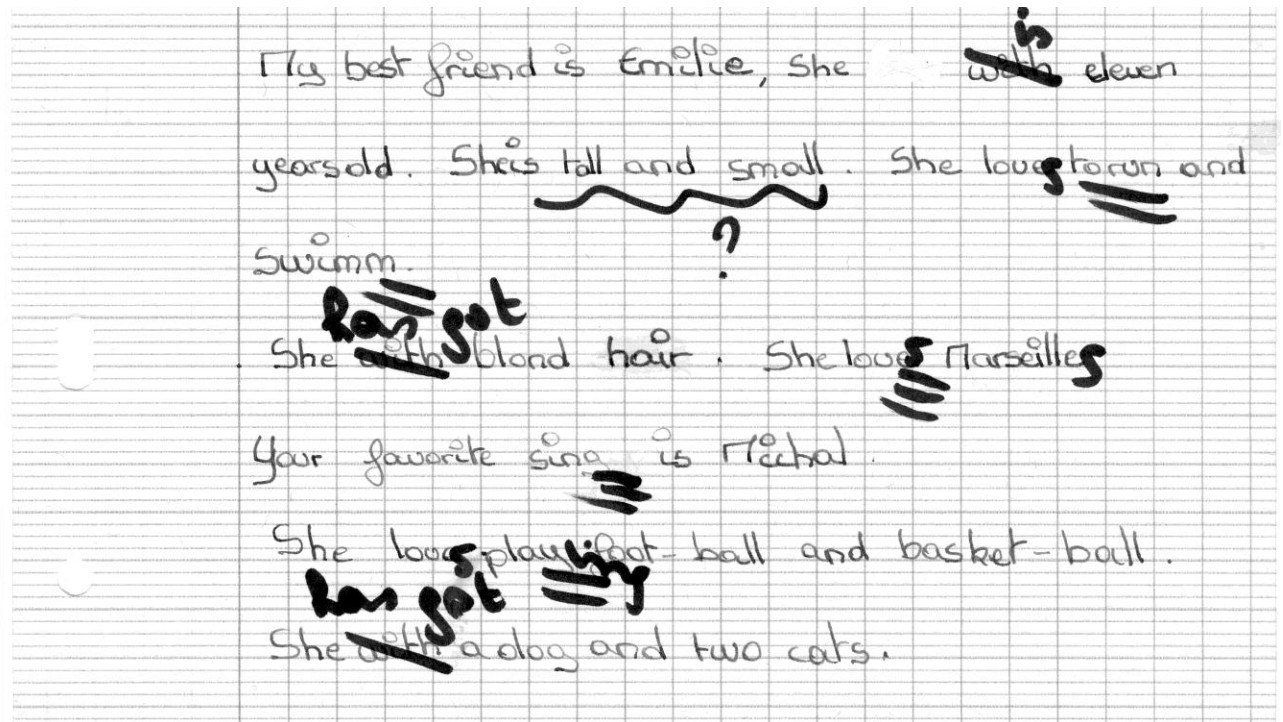 is
My best friend is Emilie, She with eleven
years old. She is tall and small. She loves to run and
?
Swimm.
has got
. She with blond hair. She loves Marseilles
Your favorite sing is Michal.
She loves playing foot-ball and basket-ball.
has got
She with a dog and two cats.